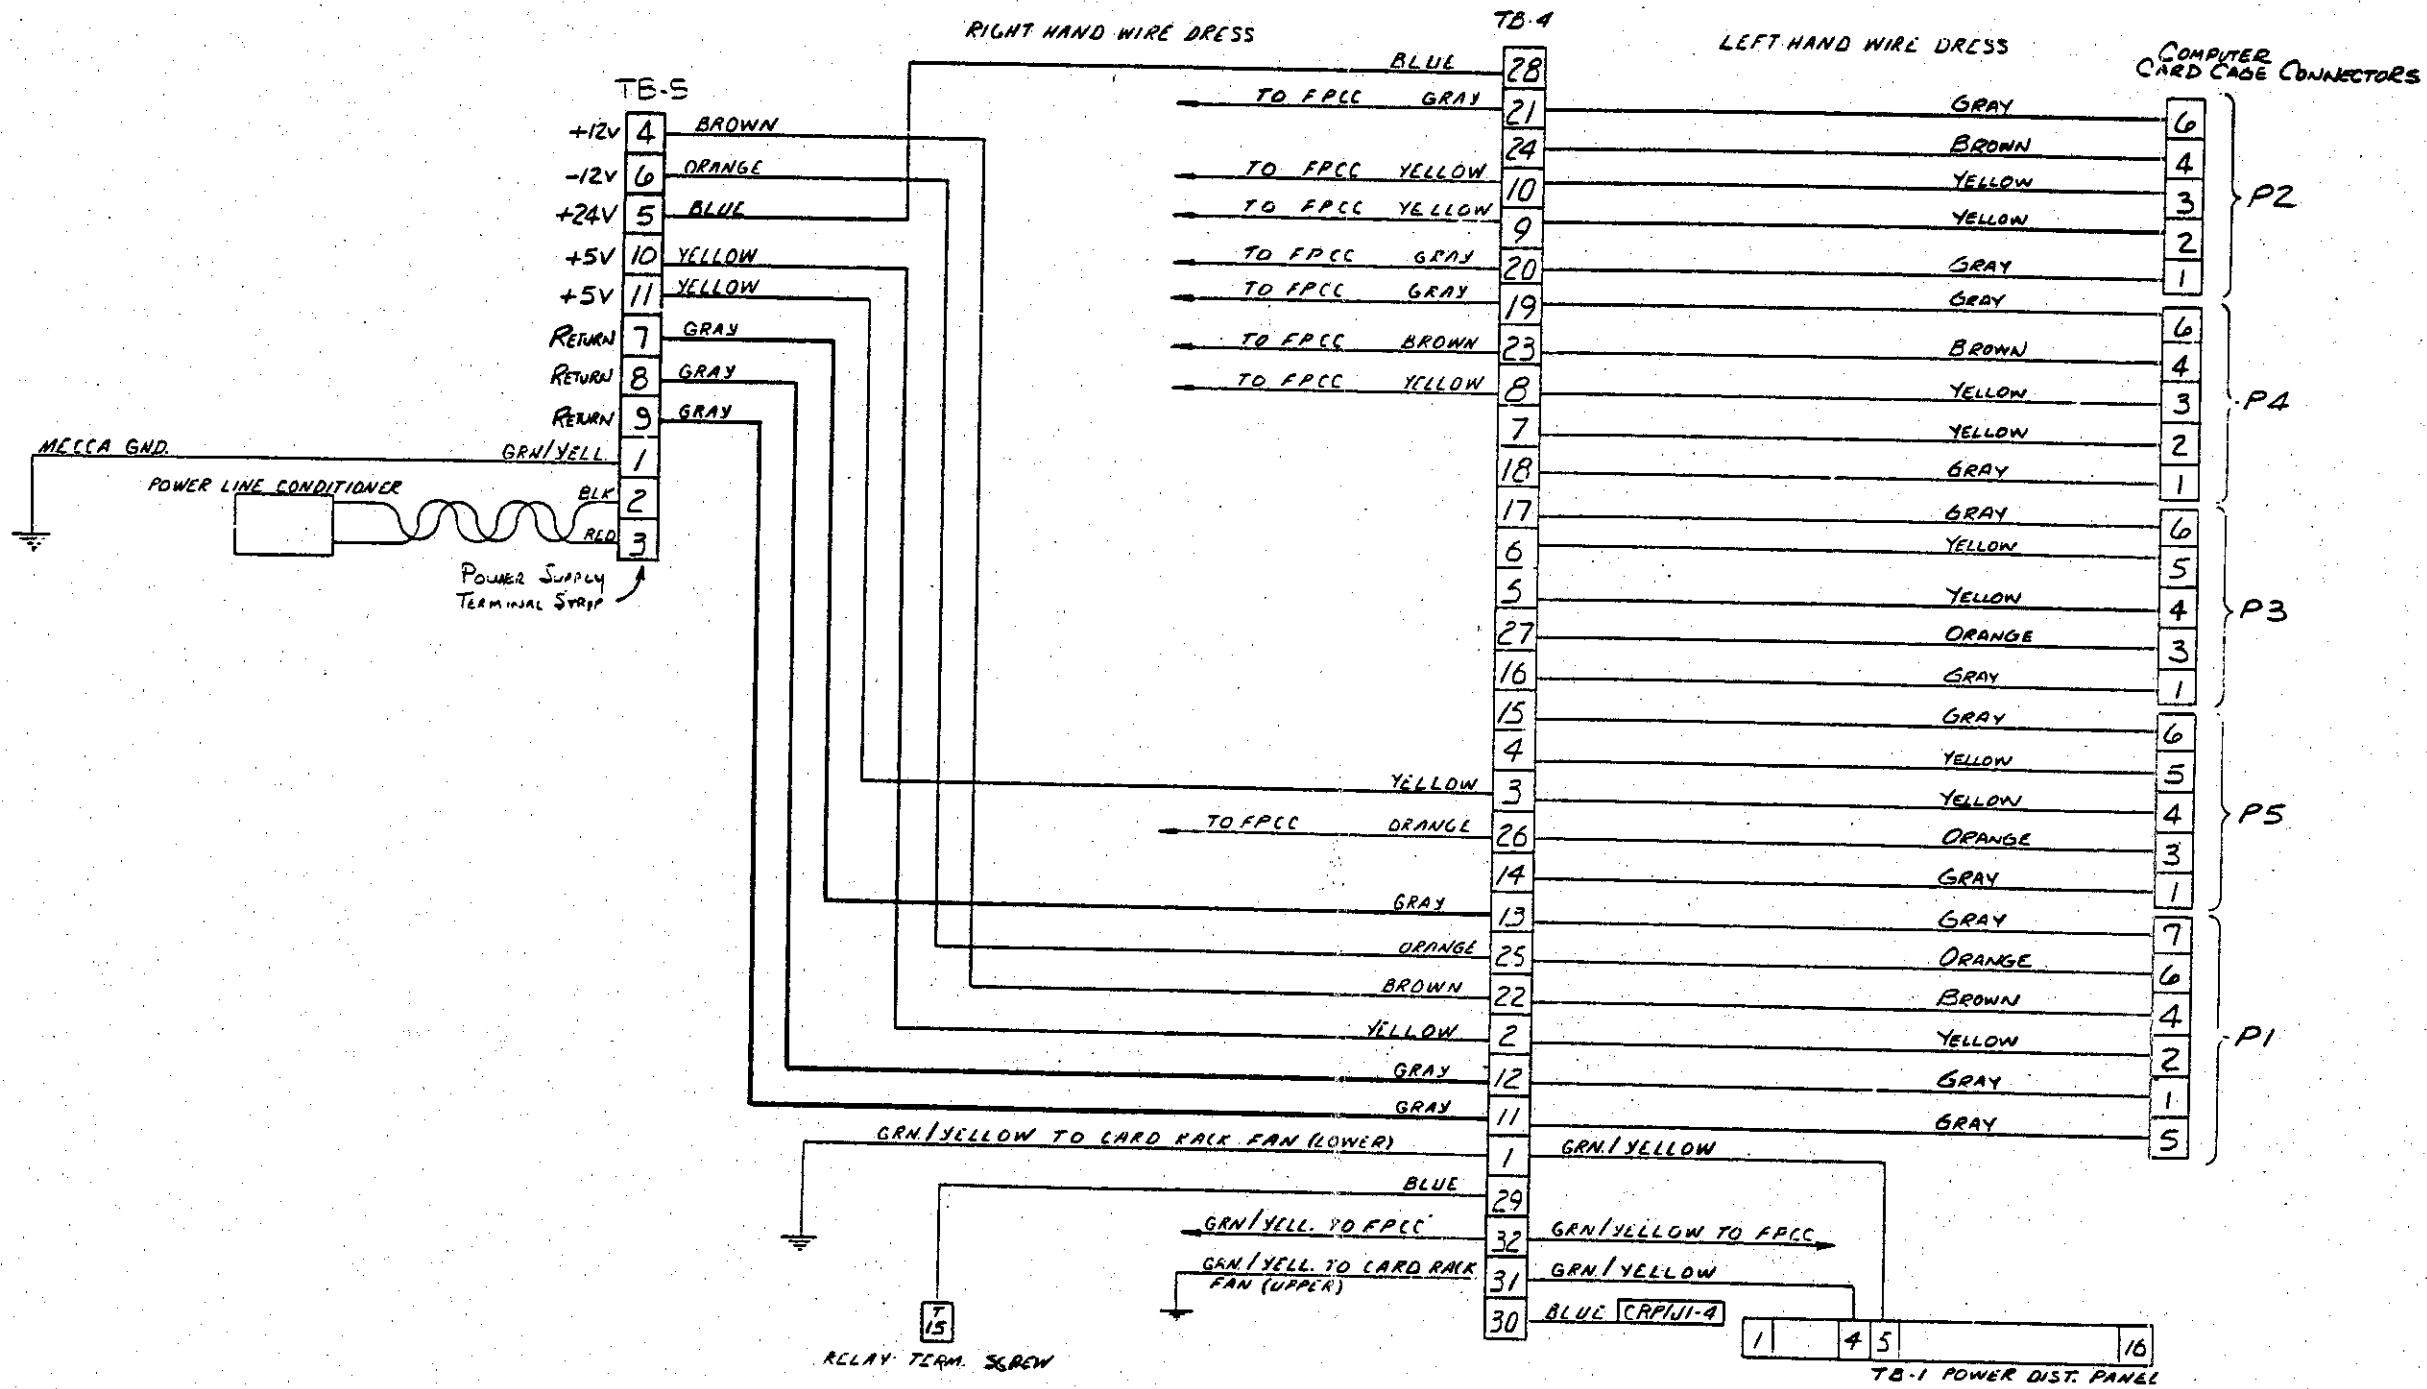 RIGHT HAND WIRE DRESS
TB-4
LEFT HAND WIRE DRESS
COMPUTER
CARD CAGE CONNECTORS
TB-5
+12V 4 BROWN
-12V 6 ORANGE
+24V 5 BLUE
+5V 10 YELLOW
+5V 11 YELLOW
RETURN 7 GRAY
RETURN 8 GRAY
RETURN 9 GRAY
MECCA GND. GRN/YELL. 1
POWER LINE CONDITIONER BLK 2
RED 3
POWER SUPPLY
TERMINAL STRIP
BLUE 28
TO FPCC GRAY 21 GRAY 6
24 BROWN 4
TO FPCC YELLOW 10 YELLOW 3
P2
TO FPCC YELLOW 9 YELLOW 2
TO FPCC GRAY 20 GRAY 1
TO FPCC GRAY 19 GRAY 6
TO FPCC BROWN 23 BROWN 4
TO FPCC YELLOW 8 YELLOW 3
P4
7 YELLOW 2
18 GRAY 1
17 GRAY 6
6 YELLOW 5
5 YELLOW 4
P3
27 ORANGE 3
16 GRAY 1
15 GRAY 6
4 YELLOW 5
YELLOW 3 YELLOW 4
P5
TO FPCC ORANGE 26 ORANGE 3
14 GRAY 1
GRAY 13 GRAY 7
ORANGE 25 ORANGE 6
BROWN 22 BROWN 4
P1
YELLOW 2 YELLOW 2
GRAY 12 GRAY 1
GRAY 11 GRAY 5
GRN./YELLOW TO CARD RACK FAN (LOWER) 1 GRN./YELLOW
BLUE 29
GRN/YELL. TO FPCC 32 GRN/YELLOW TO FPCC
GRN./YELL. TO CARD RACK 31 GRN/YELLOW
FAN (UPPER)
30 BLUE CRP1J1-4
T
15
RELAY TERM. SCREW
1 4 5 16
TB-1 POWER DIST. PANEL